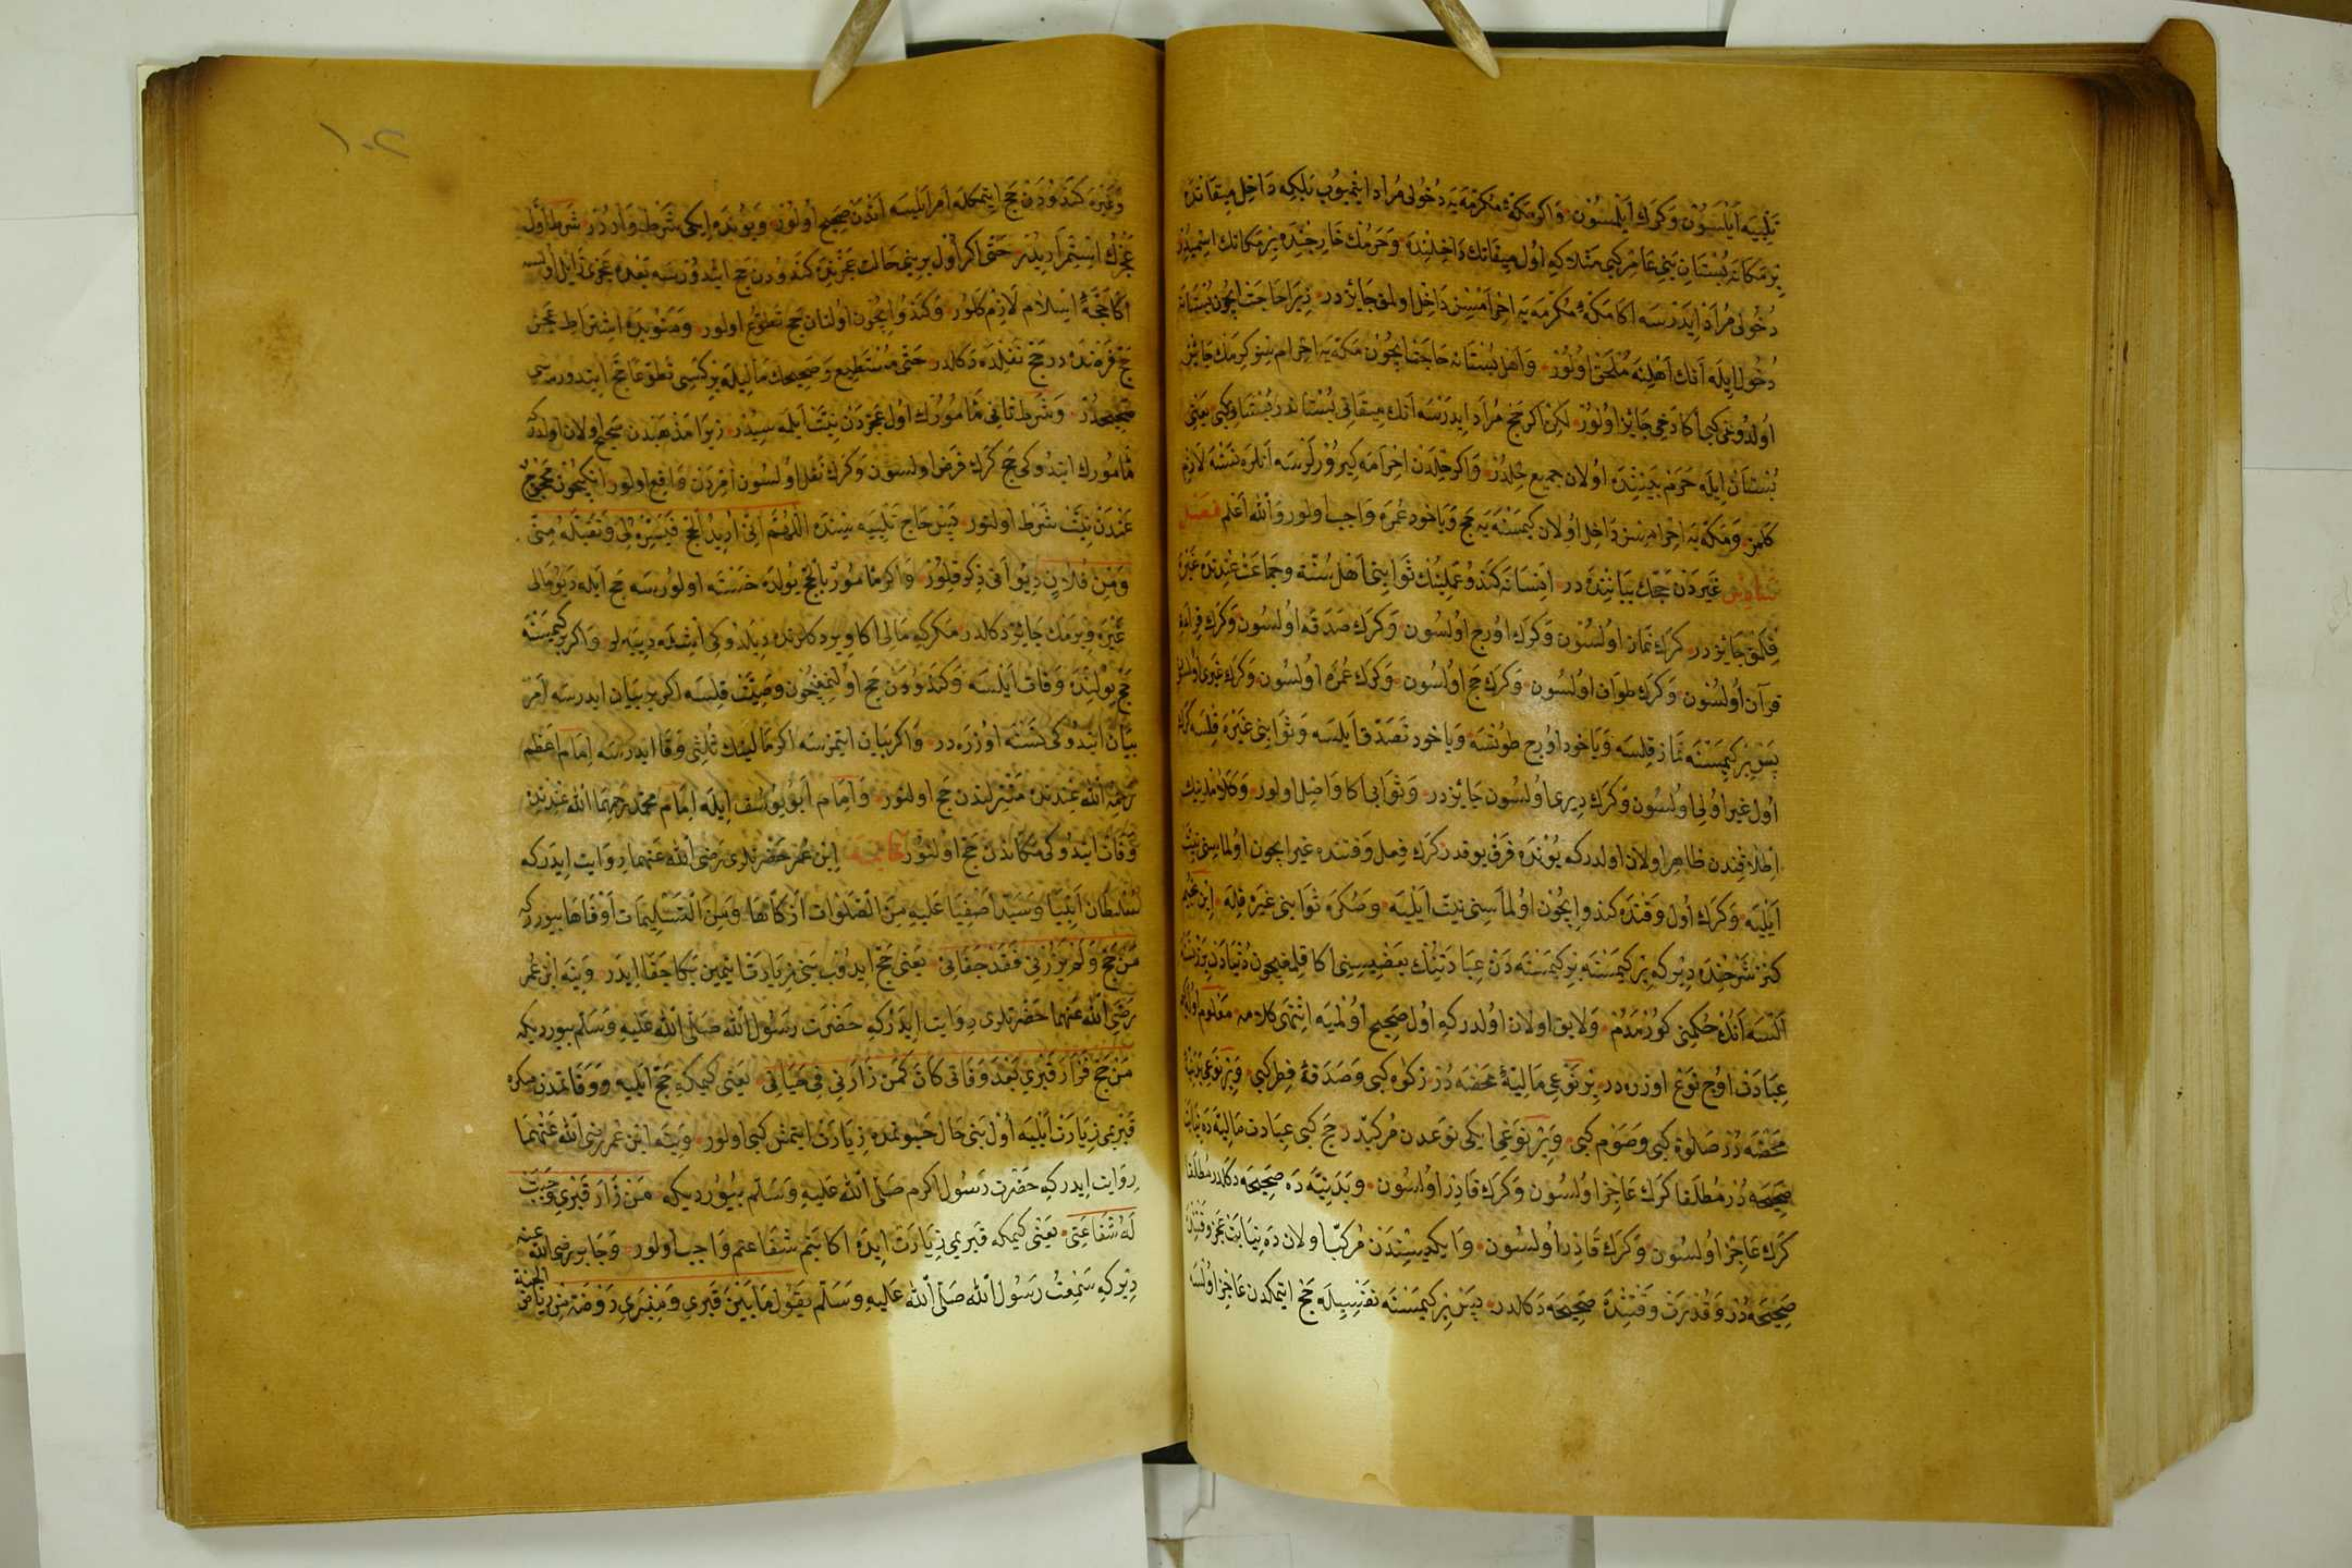 تلبيه ايلسون وكرك ايلمسون واكر مكۀ مكرمه يه دخولی مراد ايتميوب بلكه داخل ميقاتده
بر مكانه بستان بنی عامر كبی مثلا كه اول ميقاتك داخلنده وحرمك خارجنده بر مكانك اسميدر
دخولی مراد ايدرسه اكا مكۀ مكرمه يه احرامسز داخل اولمق جايزدر زيرا حاجت ايچون بستانه
دخول ايله انك اهلنه ملحق اولور واهل بستانه حاجت ايچون مكه يه احرامسز كرمك جايز
اولدوغی كبی اكا دخی جايز اولور لكن اكر حج مراد ايدرسه انك ميقاتی بستاندر بستانی كبی يعنی
بستان ايله حرم بيننده اولان جميع حلدر واكر حلدن احرامه كيرورلرسه انلره نسنه لازم
كلمز ومكه يه احرامسز داخل اولان كيمسنه يه حج ويا خود عمره واجب اولور والله اعلم فصل
سادس غيردن حجك بياننده در انسانه كندو عملينك ثوابنی اهل سنة وجماعت عندنده غيره
قلمق جايزدر كرك نماز اولسون وكرك اورج اولسون وكرك صدقه اولسون وكرك قراءة
قرآن اولسون وكرك طواف اولسون وكرك حج اولسون وكرك عمره اولسون وكرك غيری اولسون
پس بر كيمسنه نماز قلسه ويا خود اورج طوتسه ويا خود تصدق ايلسه وثوابنی غيره قلسه كرك
اول غير اولی اولسون وكرك ديری اولسون جايزدر وثوابی اكا واصل اولور وكلاملرينك
اطلاقندن ظاهر اولان اولدركه بونده فرق يوقدر كرك فعل وقتنده غير ايچون اولماسنی نيت
ايليه وكرك اول وقتده كندو ايچون اولماسنی نيت ايليه وصكره ثوابنی غيره قله ابن نجيم
كنز شرحنده ديركه بر كيمسنه بر كيمسنه دن عبادتينك بعضيسنی اكا قلمغيچون دنيادن بر نسنه
السه انك حكمنی كورمدم ولايق اولان اولدركه اول صحيح اولميه انتهی كلامه معلوم اوله كه
عبادت اوچ نوع اوزره در بر نوعی ماليۀ محضه در زكوة كبی وصدقۀ فطر كبی وبر نوعی بدنيۀ
محضه در صلوة كبی وصوم كبی وبر نوعی ايكی نوعدن مركبدر حج كبی عبادت ماليه ده نيابت
صحيحه در مطلقا كرك عاجز اولسون وكرك قادر اولسون وبدنيه ده صحيحه دكلدر مطلقا
كرك عاجز اولسون وكرك قادر اولسون وايكيسندن مركب اولان ده نيابت عجز وقتنده
صحيحه در وقدرت وقتنده صحيحه دكلدر پس بر كيمسنه نفسيله حج ايتمكدن عاجز اولسه
وغيره كندودن حج ايتمكله امر ايلسه اندن صحيح اولور وبونده ايكی شرط واردر شرط اول
عجزك استمراريدر حتی اكر اول بر نيجه حالت عجزنده كندودن حج ايتدورسه بعده عجزی زايل اولسه
اكا حجۀ اسلام لازم كلور وكندو ايچون اولنان حج تطوع اولور ومنوبده اشتراط عجز
حج فرضنده در حج نفلده دكلدر حتی مستطيع وصحيحك ماليله بر كسی تطوعا حج ايتدورمسی
صحيحدر وشرط ثانی مأمورك اول عجزدن نيت ايلمه سيدر زيرا مذهبدن صحيح اولان اولدركه
مأمورك ايتدوكی حج كرك فرض اولسون وكرك نفل اولسون امردن واقع اولور انكيچون محجوج
عندن نيت شرط اولنور پس حاج تلبيه سنده اللهم انی اريد الحج فيسره لی وتقبله منی
ومن فلان ديو انی ذكر قلور واكر مأمور بالحج يولده خسته اولورسه حج ايله ديو مالی
غيره ويرمك جايز دكلدر مكركه مالی اكا ويرد كلرنده ديلدوكی ايشله ديیه لر واكر بر كيمسنه
حج يولنده وفات ايلسه وكندودن حج اولنمغيچون وصيت قلسه اكر بر بيان ايدرسه امر
بيان ايتدوكی نسنه اوزره در واكر بيان ايتمزسه اكر مالينك ثلثی وفا ايدرسه امام اعظم
رحمه الله عندنده منزلندن حج اولنور وامام ابو يوسف ايله امام محمد رحمهما الله عندنده
وفات ايتدوكی مكاندن حج اولنور خاتمه ابن عمر حضرتلری رضی الله عنهما روايت ايدركه
سلطان انبيا وسيد اصفيا عليه من الصلوات ازكاها ومن التسليمات اوفاها بيوررکه
من حج ولم يزرنی فقد جفانی يعنی حج ايدوب بنی زيارت ايتمين بكا جفا ايدر وينه ابن عمر
رضی الله عنهما حضرتلری روايت ايدركه حضرت رسول الله صلی الله عليه وسلم بيورديكه
من حج فزار قبري بعد وفاتی كان كمن زارنی فی حياتی يعنی كيمكه حج ايليه ووفاتمدن صكره
قبريمی زيارت ايليه اول بنی حال حيوتمده زيارت ايتمش كبی اولور وينه ابن عمر رضی الله عنهما
روايت ايدركه حضرت رسول اكرم صلی الله عليه وسلم بيورديكه من زار قبری وجبت
له شفاعتی يعنی كيمكه قبريمی زيارت ايده اكا بنم شفاعتم واجب اولور وجابر رضی الله عنه
ديركه سمعت رسول الله صلی الله عليه وسلم يقول ما بين قبری ومنبری روضة من رياض الجنة
١٠٢